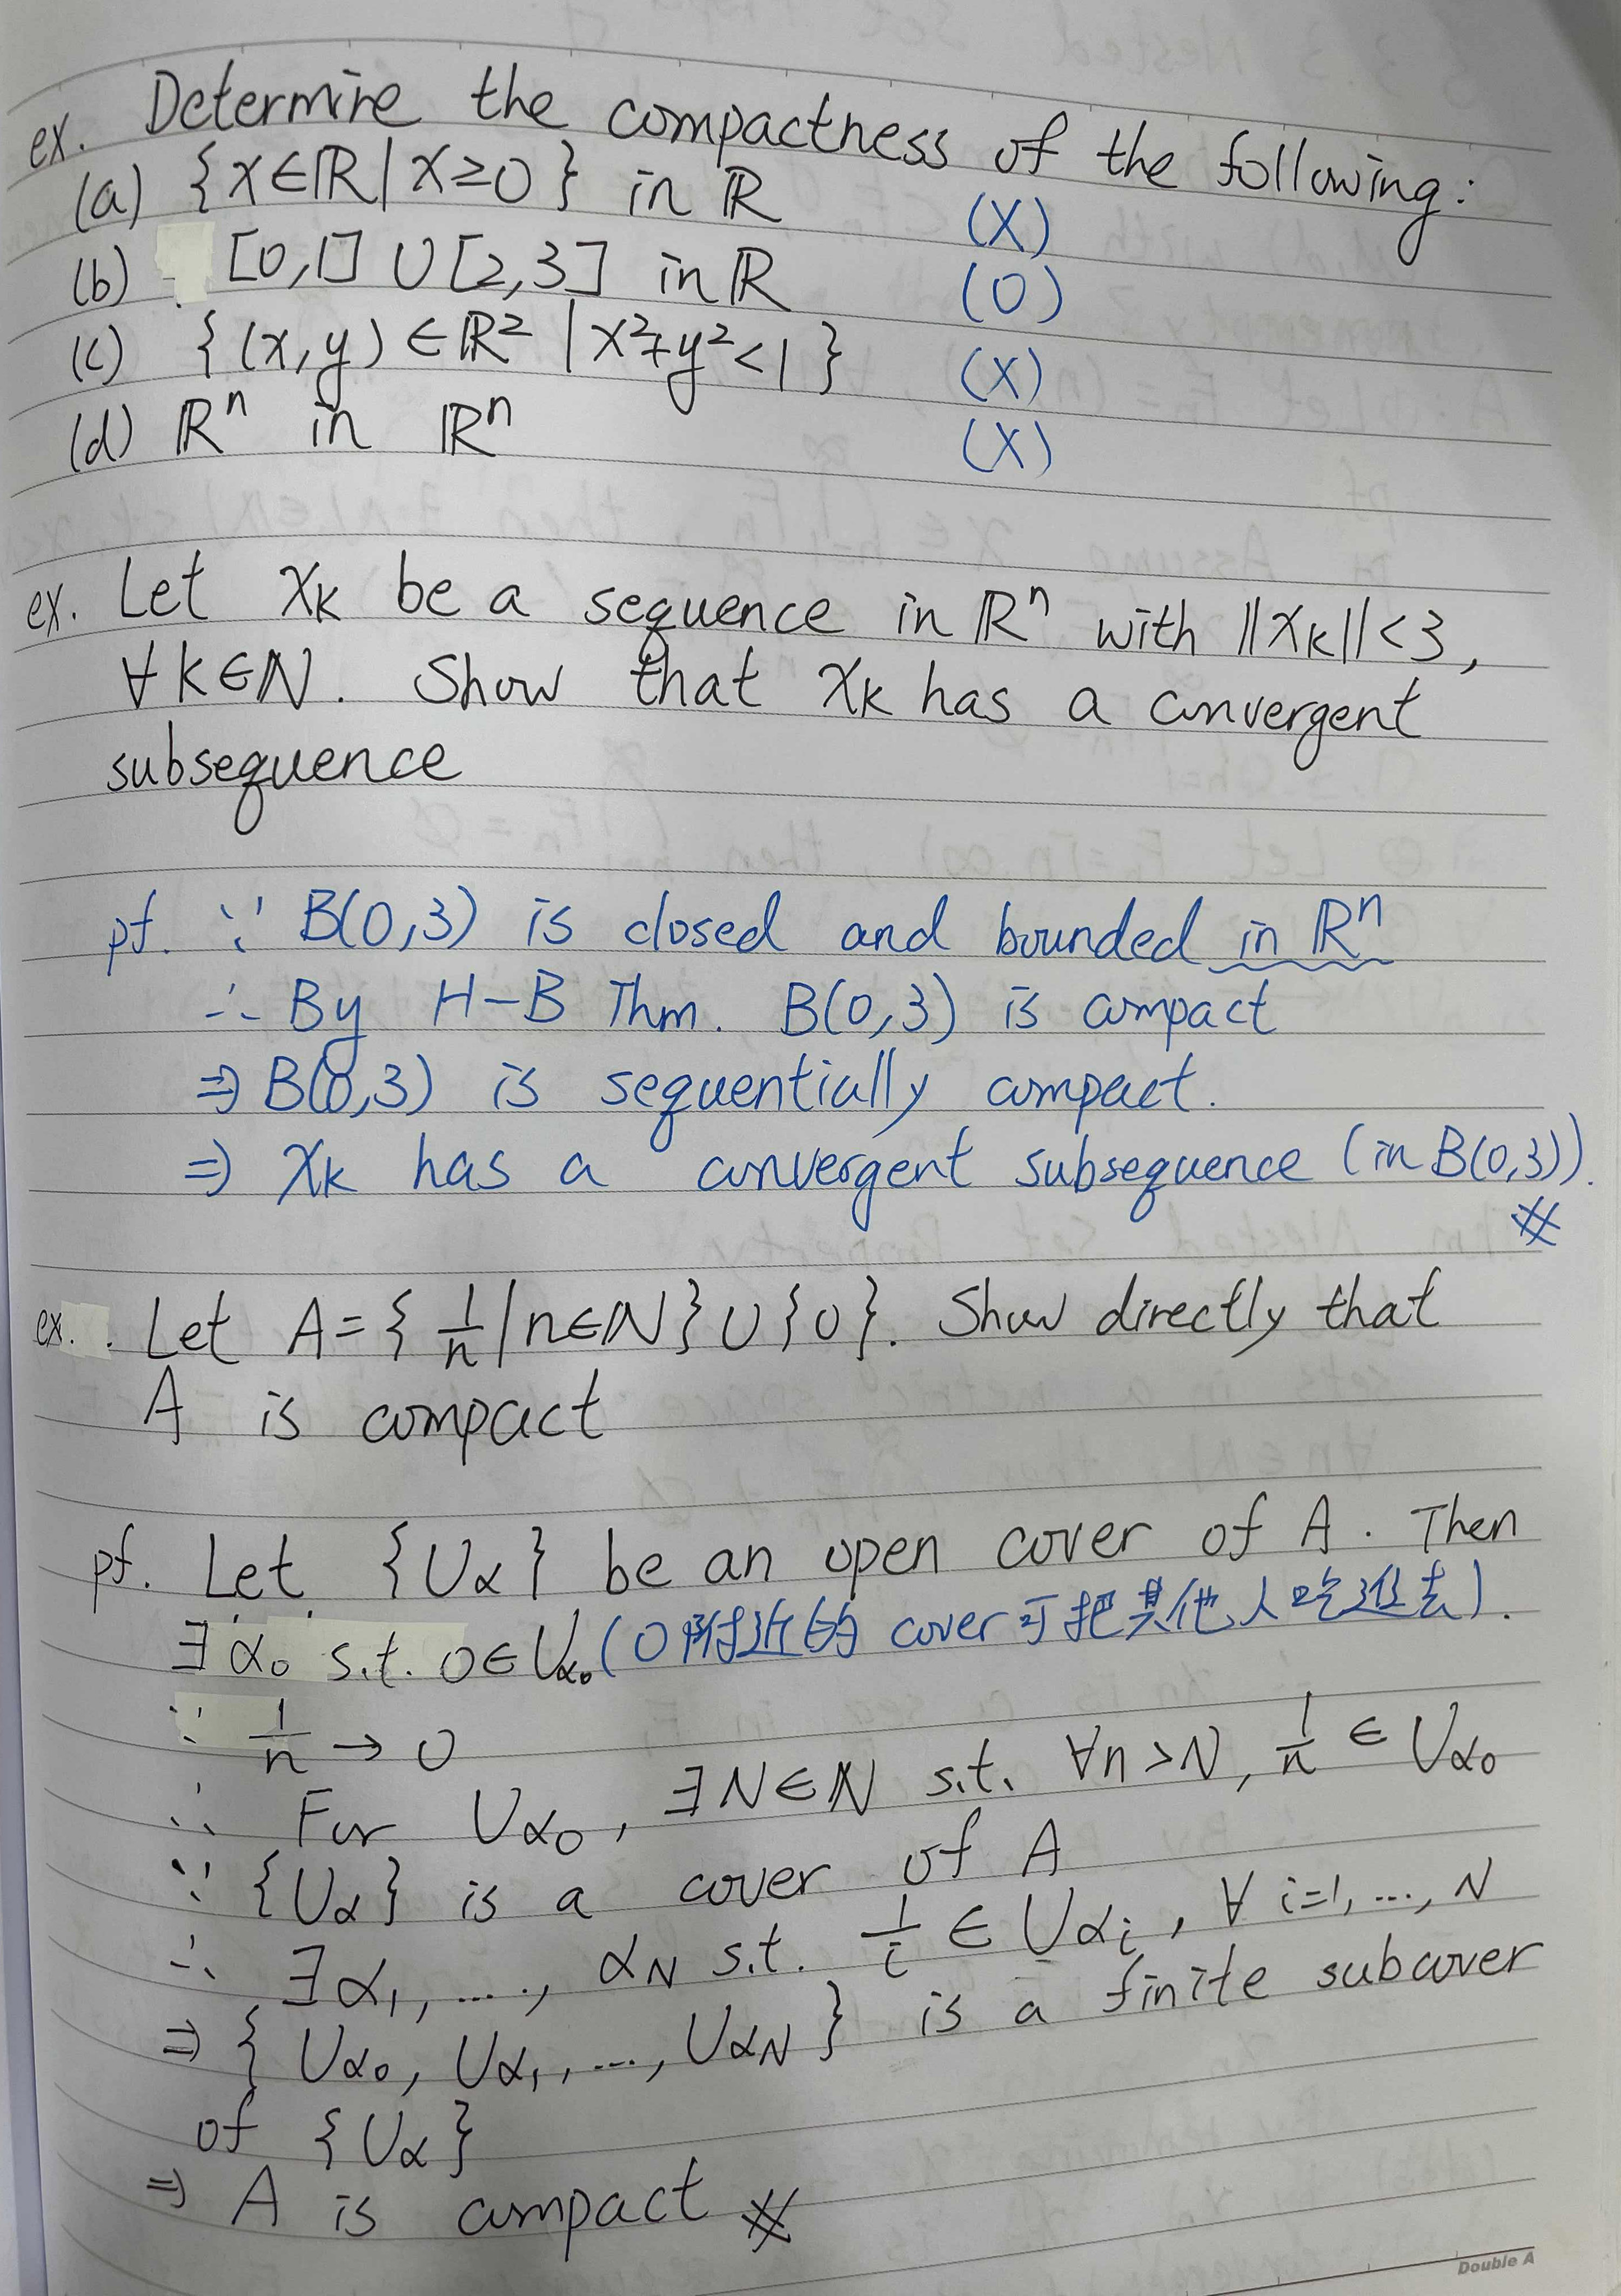 ex. Determine the compactness of the following:
(a) {x∈ℝ | x≥0} in ℝ (X)
(b) [0,1] ∪ [2,3] in ℝ (O)
(c) {(x,y) ∈ ℝ² | x²+y²<1} (X)
(d) ℝⁿ in ℝⁿ (X)
ex. Let xₖ be a sequence in ℝⁿ with ‖xₖ‖<3,
∀k∈ℕ. Show that xₖ has a convergent
subsequence
pf. ∵ B(0,3) is closed and bounded in ℝⁿ
∴ By H-B Thm. B(0,3) is compact
⇒ B(0,3) is sequentially compact.
⇒ xₖ has a convergent subsequence (in B(0,3)).
※
ex. Let A={1/n | n∈ℕ}∪{0}. Show directly that
A is compact
pf. Let {Uα} be an open cover of A. Then
∃α₀ s.t. 0∈Uα₀ (0附近的 cover 可把其他人吃進去).
∵ 1/n → 0
∴ For Uα₀, ∃N∈ℕ s.t. ∀n>N, 1/n ∈ Uα₀
∵ {Uα} is a cover of A
∴ ∃α₁, ...., αN s.t. 1/i ∈ Uαi, ∀ i=1, ..., N
⇒ {Uα₀, Uα₁, ..., UαN} is a finite subcover
of {Uα}
⇒ A is compact ※
Double A